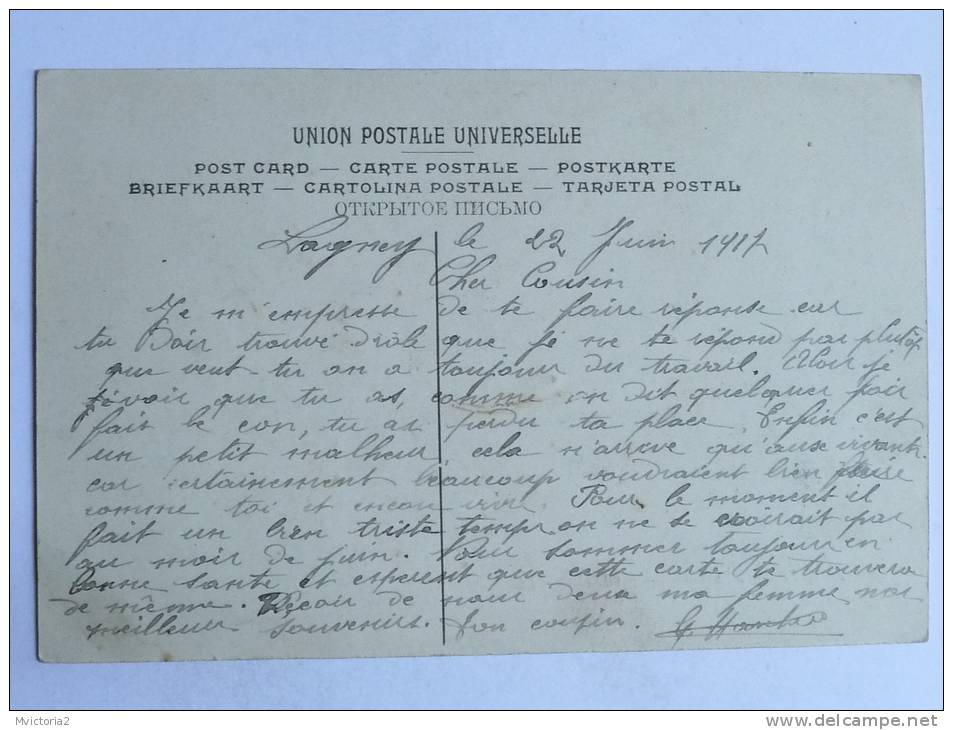 UNION POSTALE UNIVERSELLE
POST CARD — CARTE POSTALE — POSTKARTE
BRIEFKAART — CARTOLINA POSTALE — TARJETA POSTAL
ОТКРЫТОЕ ПИСЬМО
Lagny le 22 Juin 1917
Cher Cousin
Je m'empresse de te faire réponse car
tu doir trouvé drôle que je ne te répond par plutôt
que veut-tu on a toujour du travail. Alor je
voir que tu as, comme on dit quelquer foir
fait le con, tu as perdu ta place, Enfin c'est
un petit malheur, cela n'arrive qu'aux vivant
car certainement beaucoup voudraient bien faire
comme toi et encor vivre. Pour le moment il
fait un bien triste temps on ne se croirait par
au moir de juin. Nour sommer toujour en
bonne santé et espérent que cette carte te trouvera
de même. Reçoir de nour deux ma femme nos
meilleur souvenirs. Ton cousin. G.
Mvictoria2
www.delcampe.net